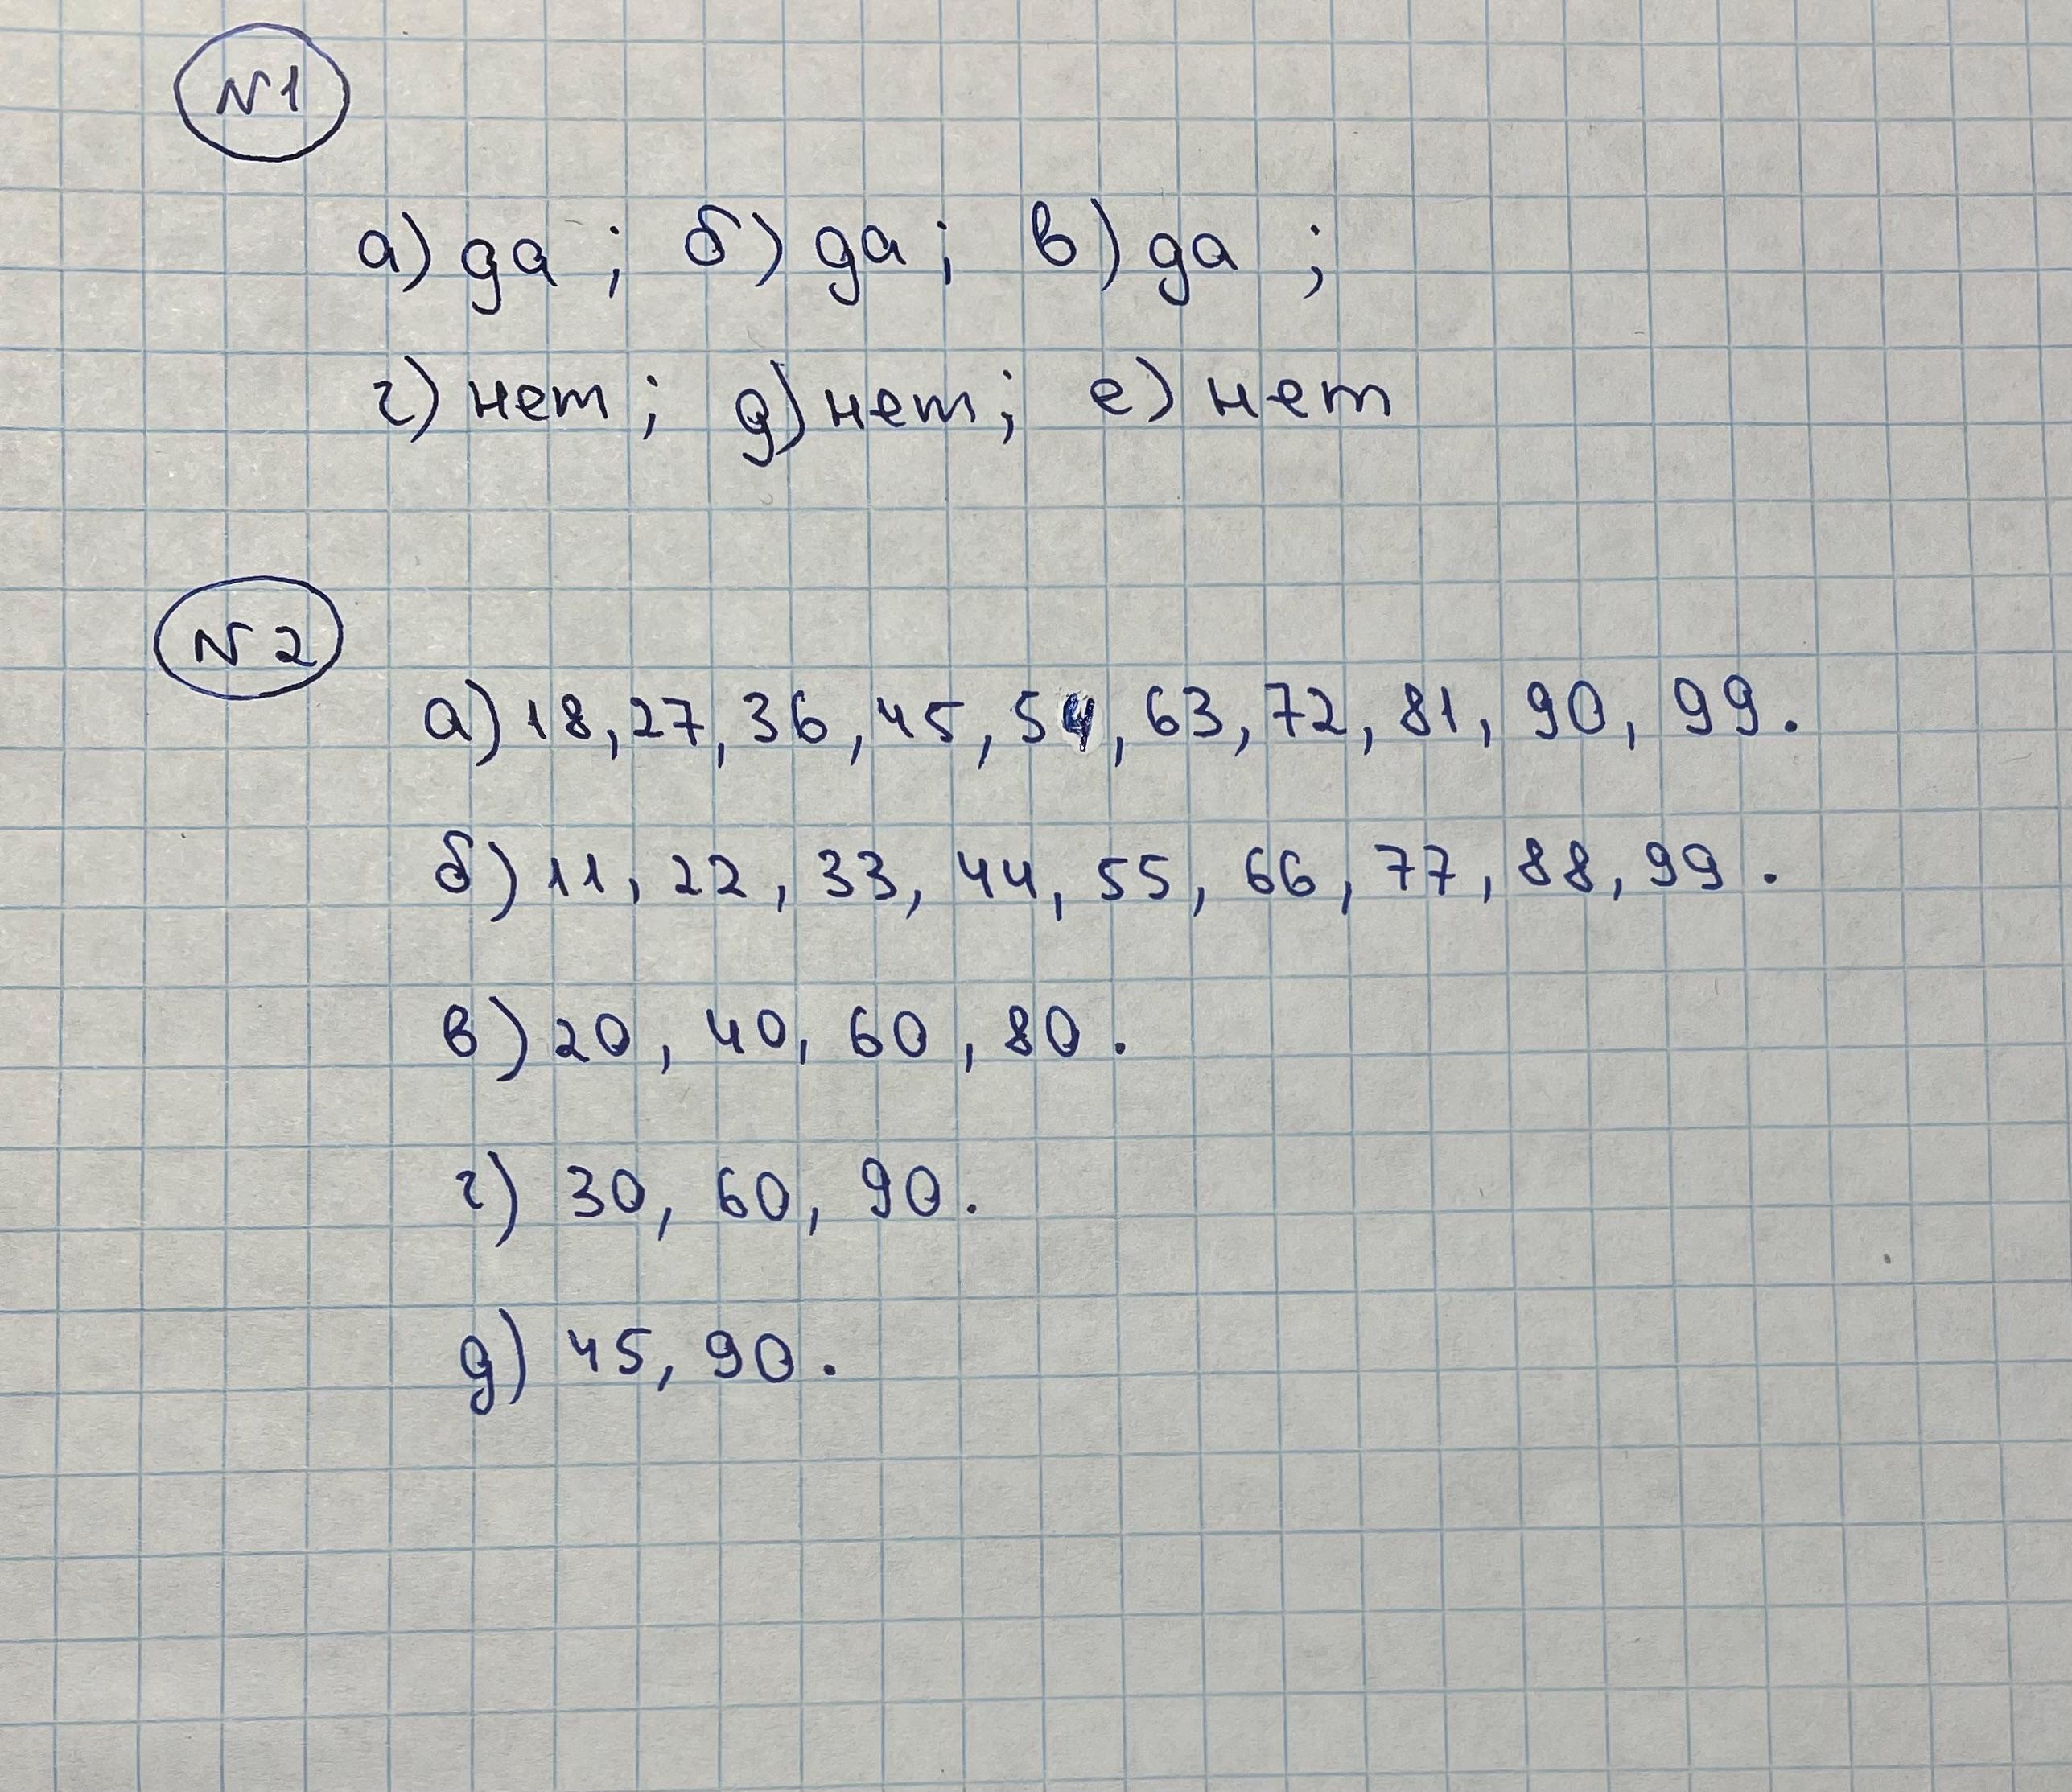 N1
а) да ; б) да ; в) да ;
г) нет ; д) нет ; е) нет
N2
а) 18, 27, 36, 45, 54, 63, 72, 81, 90, 99.
б) 11, 22, 33, 44, 55, 66, 77, 88, 99.
в) 20, 40, 60, 80.
г) 30, 60, 90.
д) 45, 90.